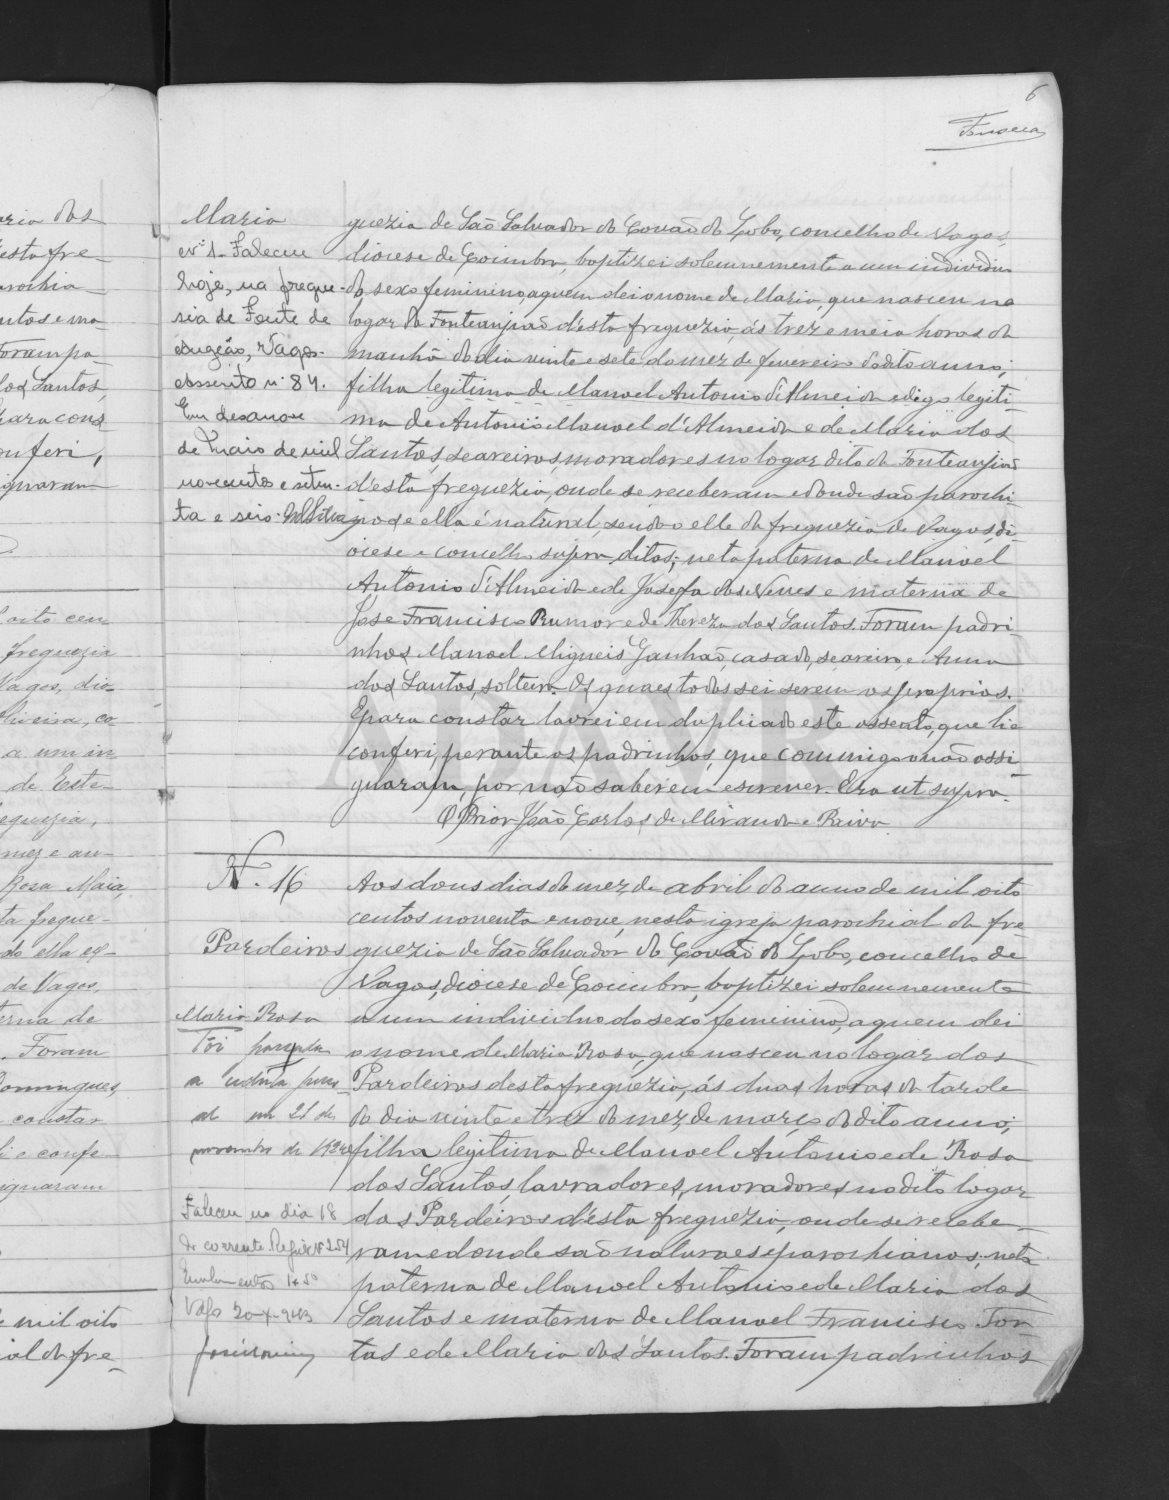 6
Fonseca
Maria
Nº 1 - Faleceu
hoje, na fregue-
sia de Fonte de
Angeão, Vagos.
Assento nº 84.
Em desanove
de Maio de mil
novecentos e seten-
ta e seis.
guezia de São Salvador do Covão do Lobo, concelho de Vagos,
diocese de Coimbra, baptizei solemnemente a um individuo
do sexo feminino a quem dei o nome de Maria, que nasceu no
logar da Fonteanjião d'esta freguezia, ás trez e meia horas da
manhã do dia vinte e sete do mez de fevereiro do dito anno,
filha legitima de Manoel Antonio d'Almeida e digo legiti-
ma de Antonio Manoel d'Almeida e de Maria dos
Santos, seareiros, moradores no logar dito da Fonteanjião
d'esta freguezia, onde se receberam e donde são parochi-
anos e ella é natural, sendo elle da freguezia de Vagos, di-
ocese e concelho supra ditos; neta paterna de Manoel
Antonio d'Almeida e de Josefa das Neves e materna de
Jose Francisco Rumor e de Thereza dos Santos. Foram padri-
nhos Manoel Migueis Ganhão, casado, seareiro, e Anna
dos Santos, solteira. Os quaes todos sei serem os proprios.
E para constar lavrei em duplicado este assento, que li e
conferi, perante os padrinhos, que commigo não assi-
gnaram, por não saberem escrever. Era ut supra.
O Prior João Carlos de Miranda e Paiva
N. 16
Pardeiros
Maria Rosa
Foi passada
a cedula pesso-
al em 21 de
novembro de
Faleceu no dia 18
do corrente Reg. nº 254
Emolumentos 1$50
Vagos 20-X-943
Aos dous dias do mez de abril do anno de mil oito
centos noventa e nove, nesta igreja parochial da fre
guezia de São Salvador do Covão do Lobo, concelho de
Vagos, diocese de Coimbra, baptizei solemnemente
a um individuo do sexo feminino, a quem dei
o nome de Maria Rosa, que nasceu no logar dos
Pardeiros desta freguezia, ás duas horas da tarde
do dia vinte e trez do mez de março do dito anno;
filha legitima de Manoel Antonio e de Rosa
dos Santos, lavradores, moradores no dito logar
dos Pardeiros d'esta freguezia, onde se recebe-
ram e donde são naturaes e parochianos; neta
paterna de Manoel Antonio e de Maria dos
Santos e materna de Manoel Francisco For-
tas e de Maria dos Santos. Foram padrinhos